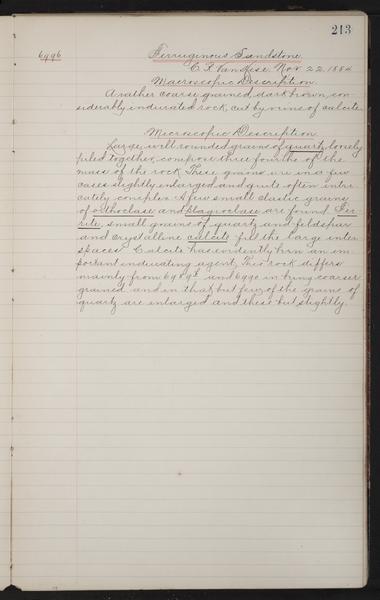 213
6996 Ferruginous Sandstone.
C. R. Van Hise, Nov. 22, 1884
Macroscopic Description.
A rather coarse grained, dark brown, con-
siderably indurated rock, cut by veins of calcite.
Microscopic Description.
Large, well rounded grains of quartz, loosely
piled together, compose three fourths of the
mass of the rock. These grains are in a few
cases slightly enlarged and quite often intri-
cately complex. A few small clastic grains
of orthoclase and plagioclase are found. Fer-
rite, small grains of quartz and feldspar
and crystalline calcite fill the large inter
spaces. Calcite has evidently been an im-
portant indurating agent. This rock differs
mainly from and 6990 in being coarser
grained and in that but few of the grains of
quartz are enlarged and these but slightly.